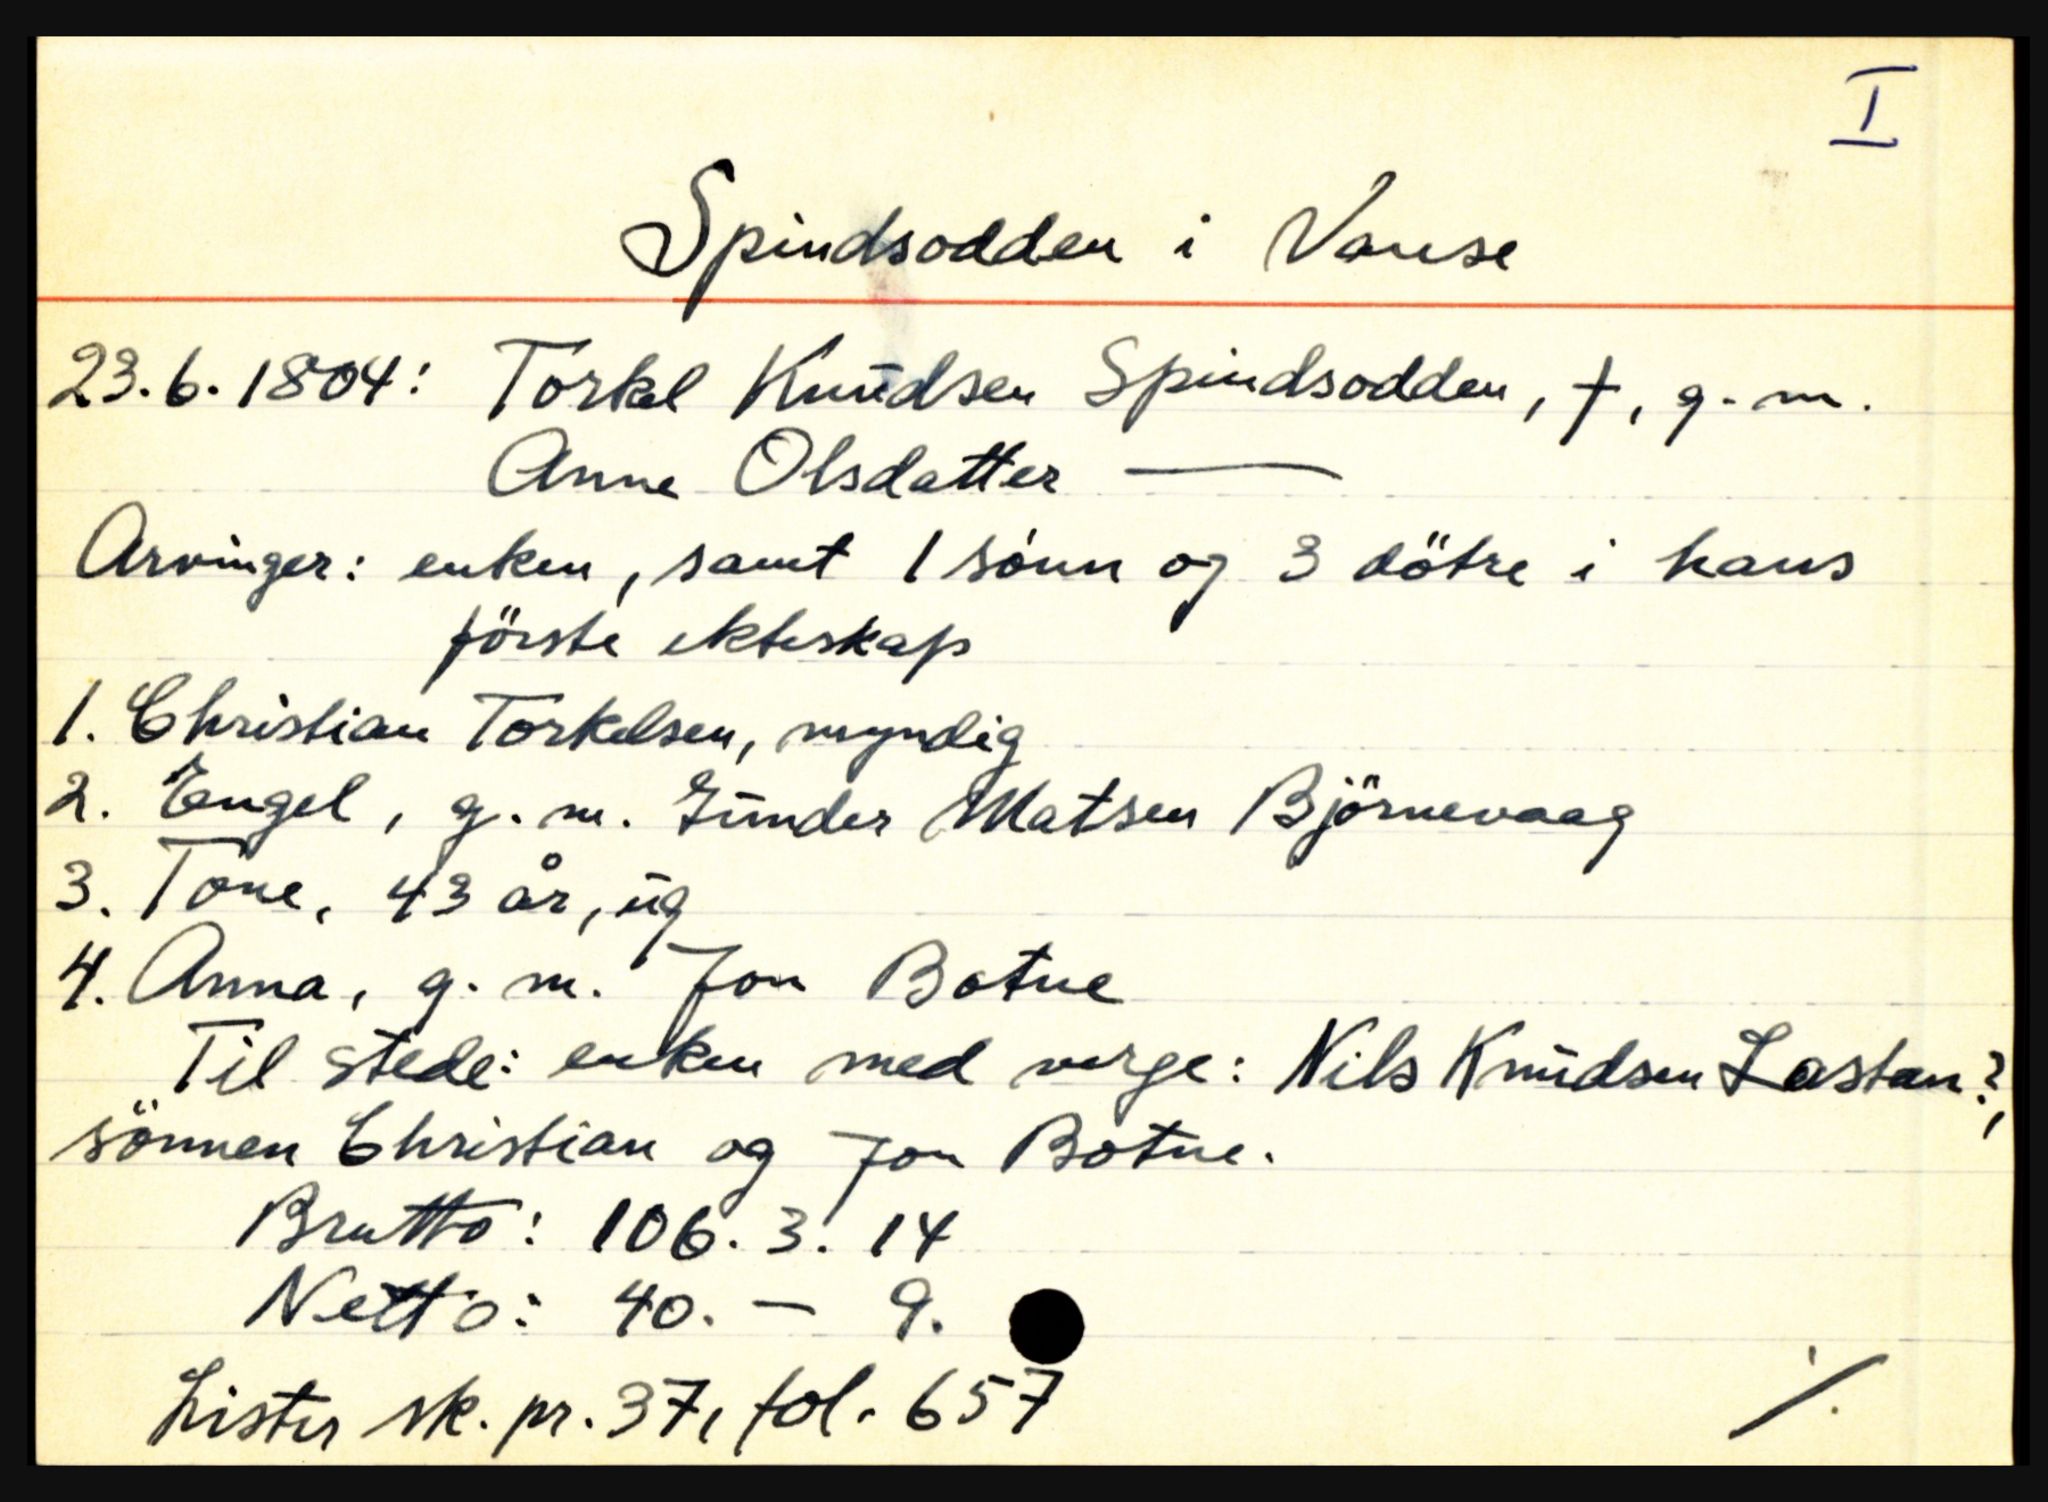 I
Spindsodden i Vanse
23.6.1804: Torkel Knudsen Spindsodden, †, g. m.
Anne Olsdatter —
Arvinger: enken, samt 1 sönn og 3 dötre i hans
förste ekteskap
1. Christian Torkelsen, myndig
2. Engel, g. m. Gunder Matsen Björnevaag
3. Tone, 43 år, ug
4. Anna, g. m. Jon Botne
Til stede: enken med verge: Nils Knudsen Lastan?,
sönnen Christian og Jon Botne.
Brutto: 106. 3. 14
Netto: 40. — 9.
Lister sk. pr. 37, fol. 657
./.